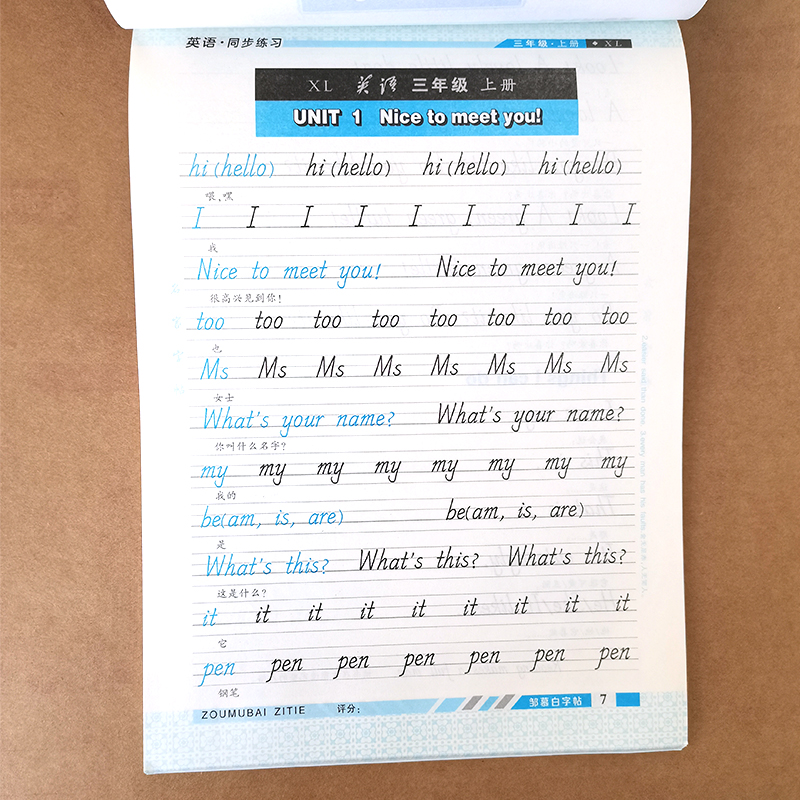 英语·同步练习 三年级·上册 ◆ XL
XL 英语 三年级 上册
UNIT 1 Nice to meet you!
hi (hello) hi (hello) hi (hello) hi (hello)
喂，嘿
I I I I I I I I I
我
Nice to meet you! Nice to meet you!
很高兴见到你！
too too too too too too too too
也
Ms Ms Ms Ms Ms Ms Ms Ms
女士
What's your name? What's your name?
你叫什么名字？
my my my my my my my my
我的
be(am, is, are) be(am, is, are)
是
What's this? What's this? What's this?
这是什么？
it it it it it it it it it
它
pen pen pen pen pen pen pen
钢笔
ZOUMUBAI ZITIE 评分： 邹慕白字帖 7